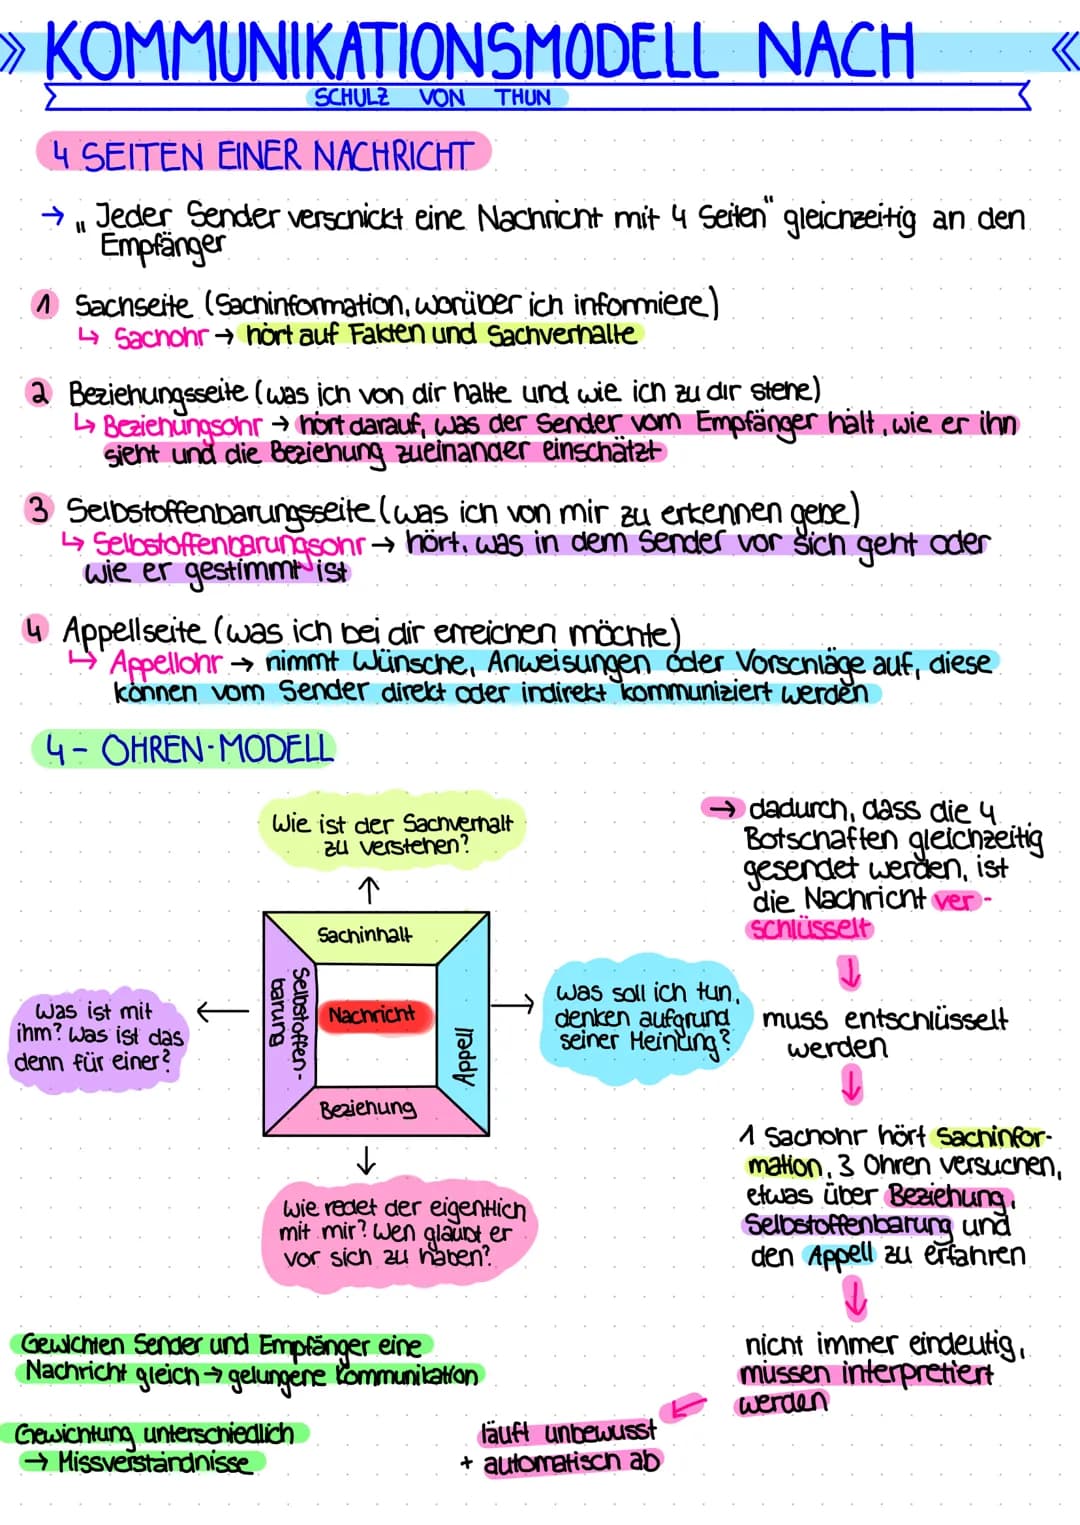 » KOMMUNIKATIONSMODELL NACH «
SCHULZ VON THUN
4 SEITEN EINER NACHRICHT
→ „Jeder Sender verschickt eine Nachricht mit 4 Seiten" gleichzeitig an den
Empfänger
1 Sachseite (Sachinformation, worüber ich informiere)
↳ Sachohr → hört auf Fakten und Sachverhalte
2 Beziehungsseite (was ich von dir halte und wie ich zu dir stehe)
↳ Beziehungsohr → hört darauf, was der Sender vom Empfänger hält, wie er ihn
sieht und die Beziehung zueinander einschätzt
3 Selbstoffenbarungsseite (was ich von mir zu erkennen gebe)
↳ Selbstoffenbarungsohr → hört, was in dem Sender vor sich geht oder
wie er gestimmt ist
4 Appellseite (was ich bei dir erreichen möchte)
↳ Appellohr → nimmt Wünsche, Anweisungen oder Vorschläge auf, diese
können vom Sender direkt oder indirekt kommuniziert werden
4 - OHREN-MODELL
Wie ist der Sachverhalt
zu verstehen?
↑
Sachinhalt
Selbstoffen-
barung
Nachricht
Appell
Beziehung
←
Was ist mit
ihm? Was ist das
denn für einer?
→
Was soll ich tun,
denken aufgrund
seiner Meinung?
↓
Wie redet der eigentlich
mit mir? Wen glaubt er
vor sich zu haben?
→ dadurch, dass die 4
Botschaften gleichzeitig
gesendet werden, ist
die Nachricht ver-
schlüsselt
↓
muss entschlüsselt
werden
↓
1 Sachohr hört Sachinfor-
mation, 3 Ohren versuchen,
etwas über Beziehung,
Selbstoffenbarung und
den Appell zu erfahren
↓
nicht immer eindeutig,
müssen interpretiert
werden
↙
läuft unbewusst
+ automatisch ab
Gewichten Sender und Empfänger eine
Nachricht gleich → gelungene Kommunikation
Gewichtung unterschiedlich
→ Missverständnisse